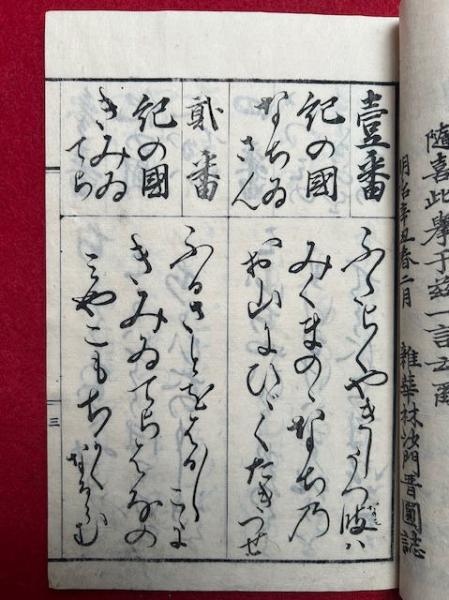 隨喜此擧于茲一言云爾
明治辛丑春二月 雜華林沙門晋圓誌
壹番
紀の國
なちゐ
さん
ふだらくやきしうつ波ハ
みくまのゝなち乃
お山にひゞくたきつせ
貳番
紀の國
きみゐ
てら
ふるさとをはる〲こゝに
きみゐてらはなの
みやこもちかく
なるらむ
三